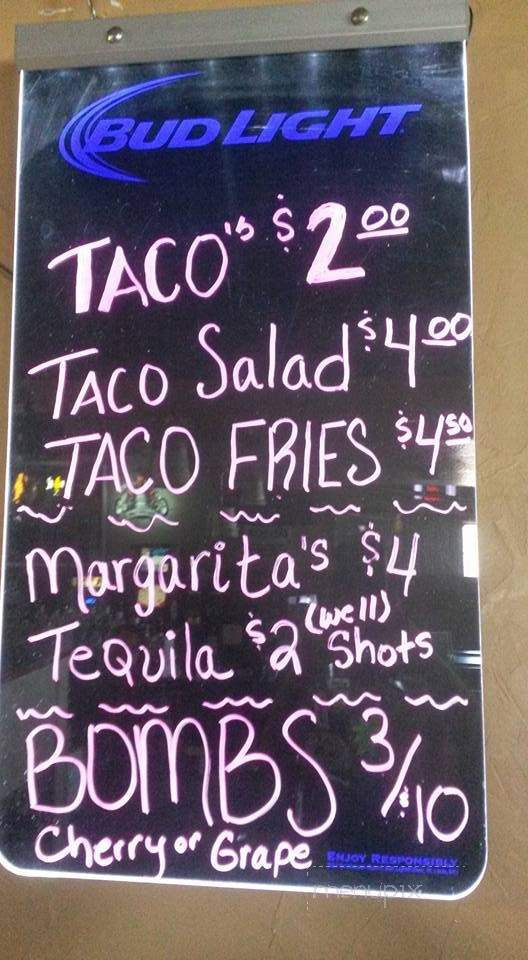 BUD LIGHT
TACO's $2.00
TACO Salad $4.00
TACO FRIES $4.50
Margarita's $4
Tequila $2 (well) Shots
BOMBS 3/$10
Cherry or Grape
ENJOY RESPONSIBLY
menupix